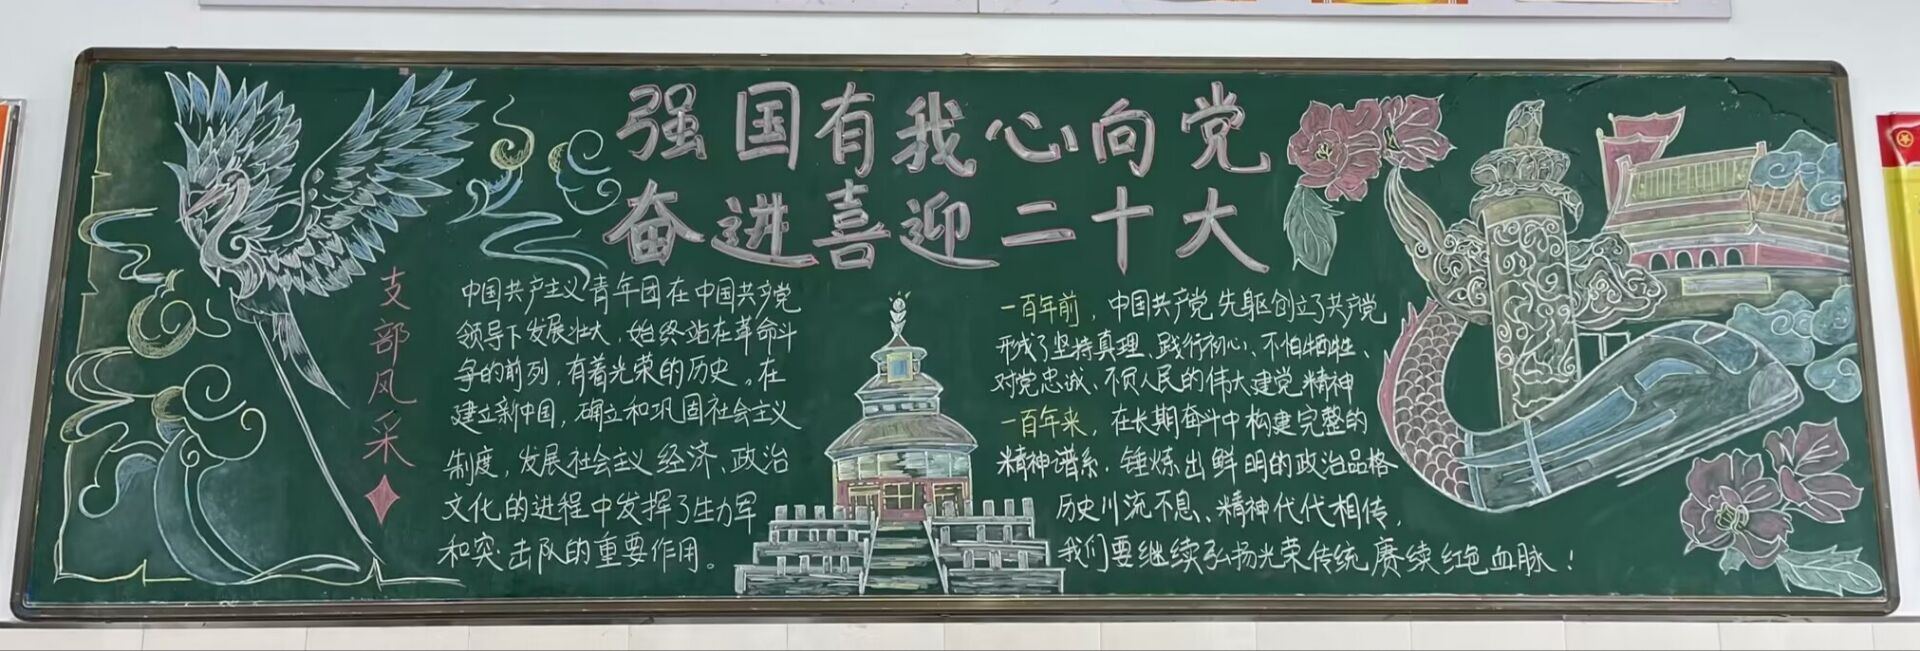 强国有我心向党
奋进喜迎二十大
支部风采
中国共产主义青年团在中国共产党
领导下发展壮大，始终站在革命斗
争的前列，有着光荣的历史。在
建立新中国，确立和巩固社会主义
制度，发展社会主义经济、政治
文化的进程中发挥了生力军
和突击队的重要作用。
一百年前，中国共产党先驱创立了共产党
形成了坚持真理、践行初心、不怕牺牲、
对党忠诚、不负人民的伟大建党精神
一百年来，在长期奋斗中构建完整的
精神谱系，锤炼出鲜明的政治品格
历史川流不息、精神代代相传，
我们要继续弘扬光荣传统赓续红色血脉！